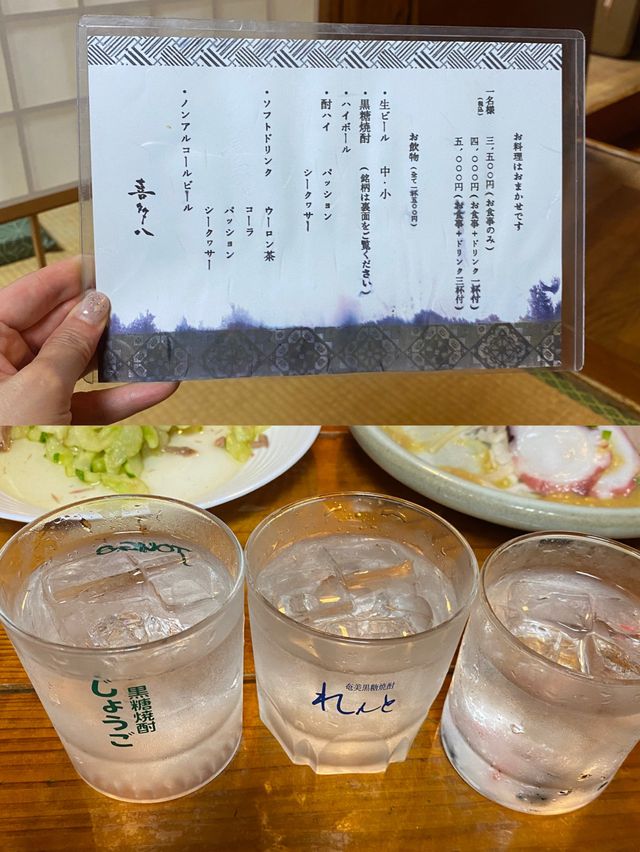 お料理はおまかせです
一名様 三、五〇〇円(お食事のみ)
(税込) 四、〇〇〇円(お食事+ドリンク一杯付)
五、〇〇〇円(お食事+ドリンク三杯付)
お飲物(全て一杯五〇〇円)
・生ビール 中・小
・黒糖焼酎 (銘柄は裏面をご覧ください)
・ハイボール
・酎ハイ パッション
シークヮサー
・ソフトドリンク ウーロン茶
コーラ
パッション
シークヮサー
・ノンアルコールビール
喜多八
JOUGO
黒糖焼酎
じょうご
奄美黒糖焼酎
れんと